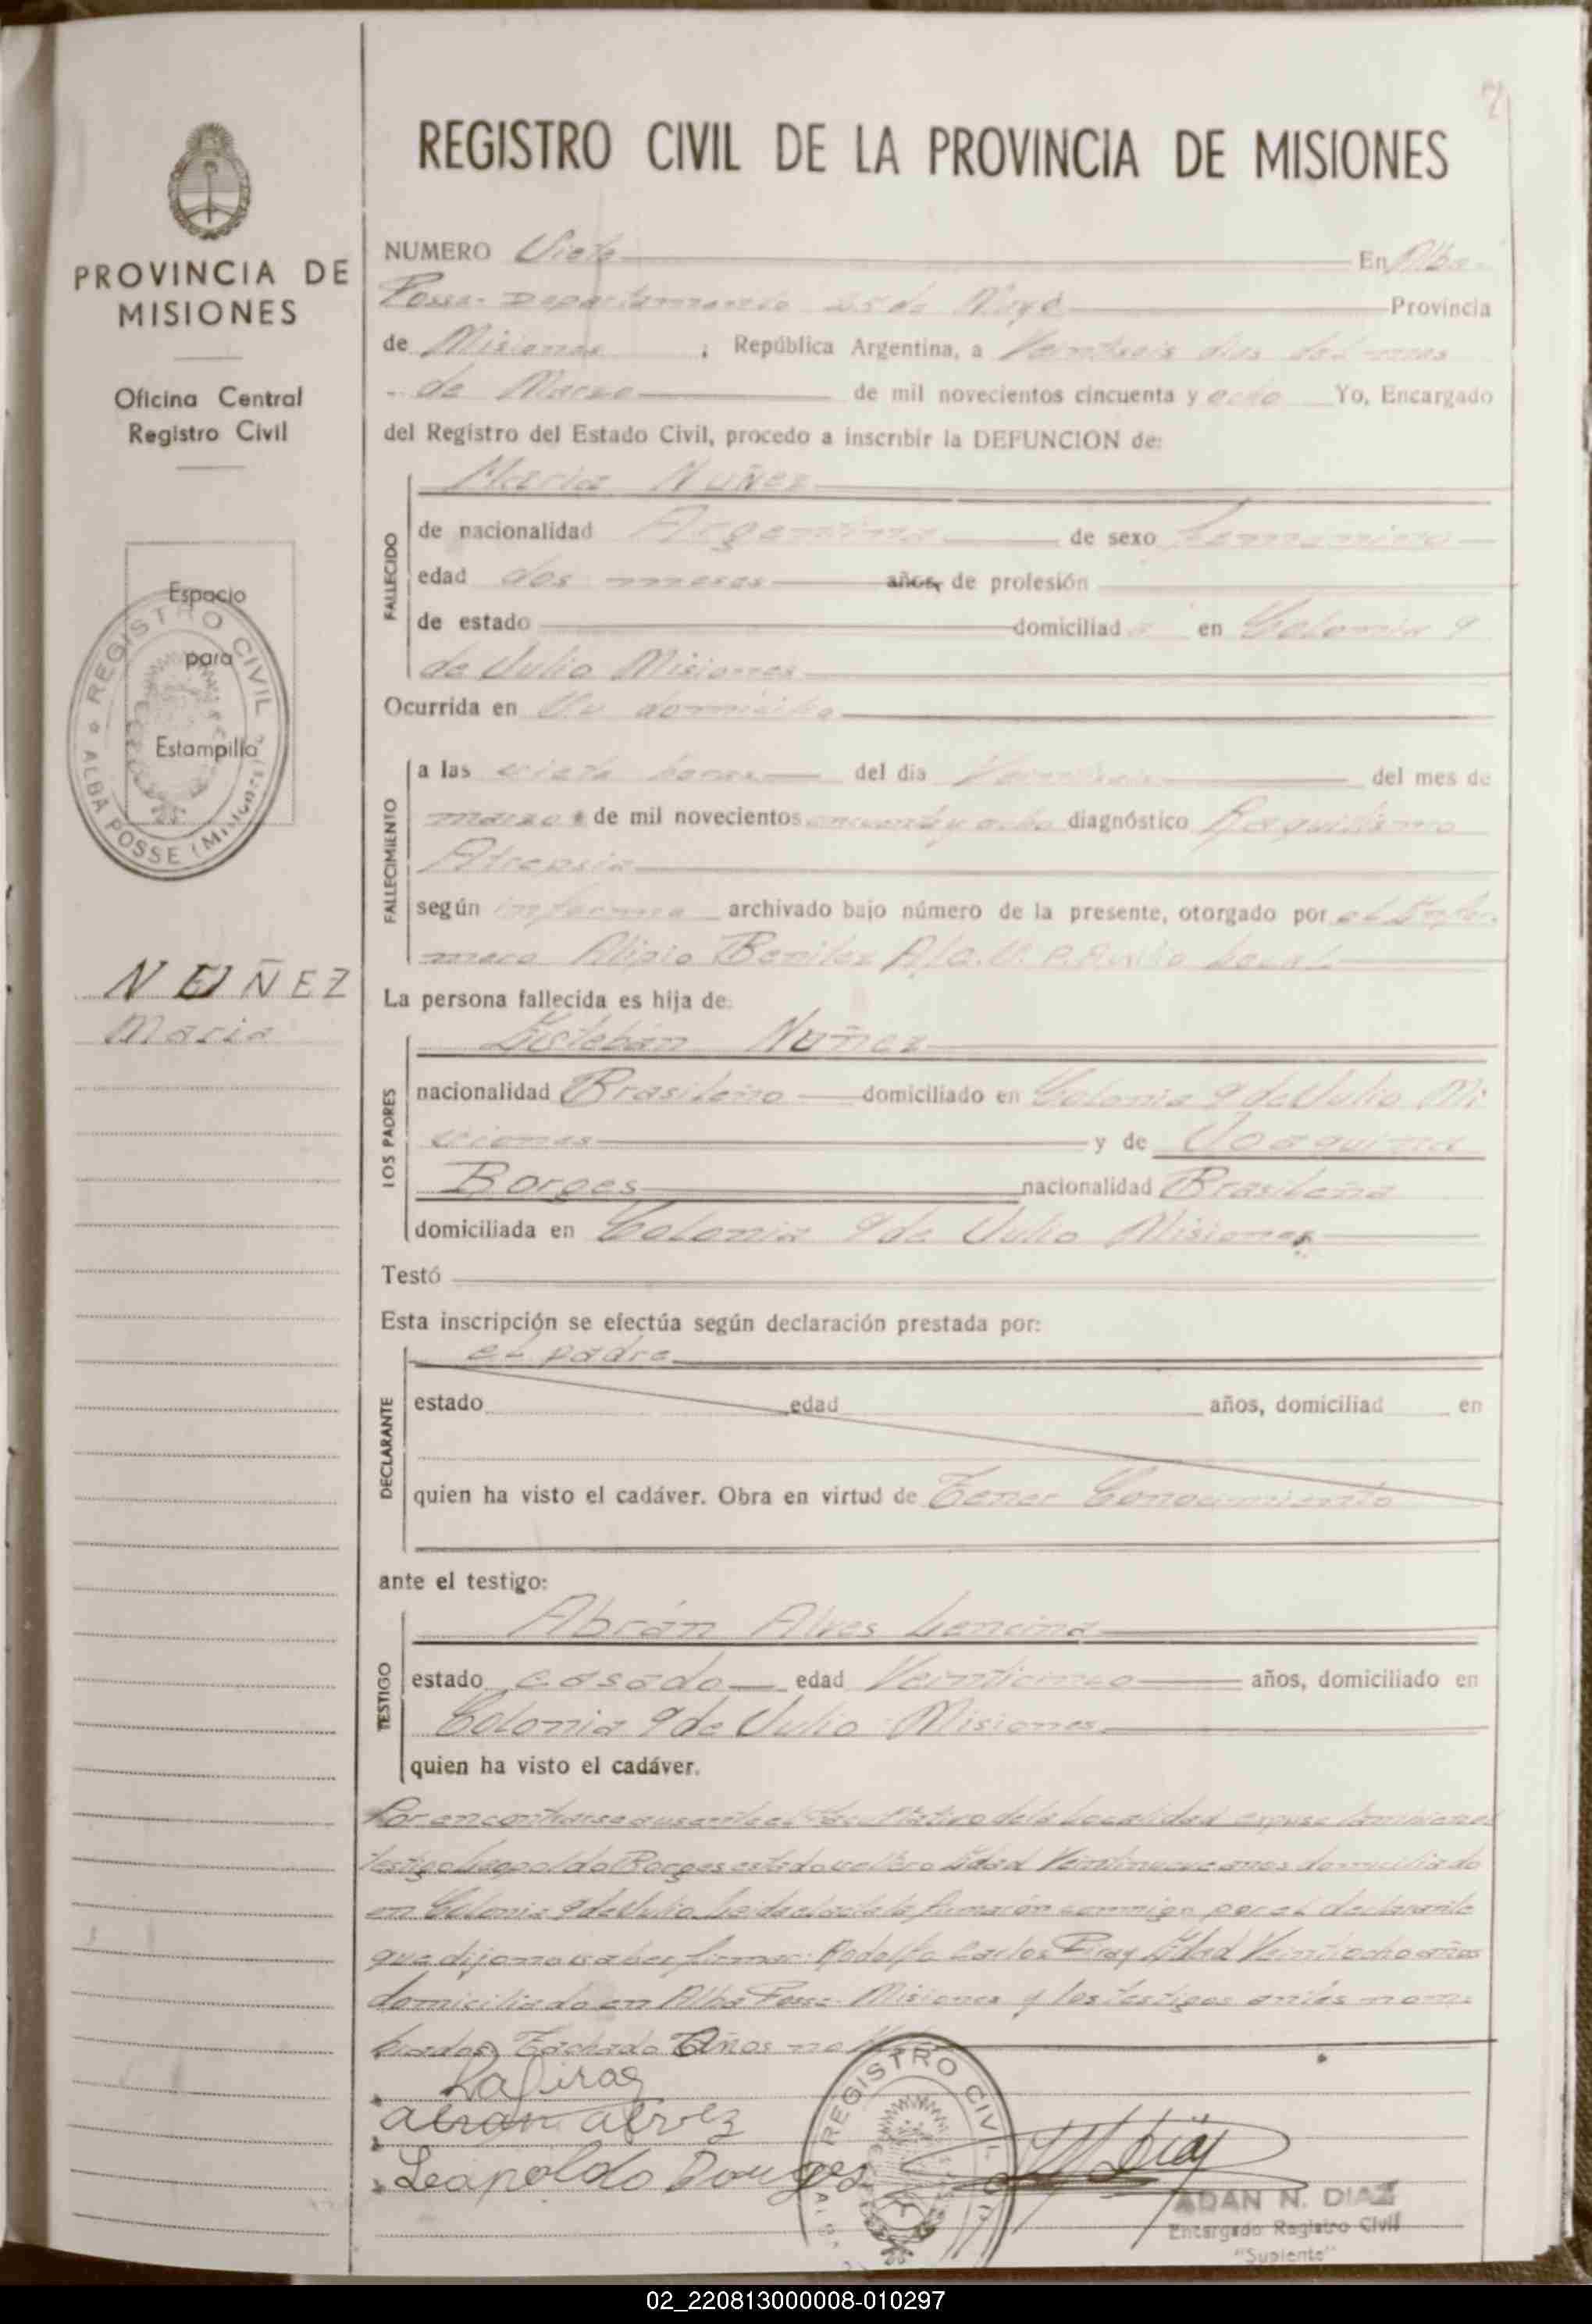 7
REGISTRO CIVIL DE LA PROVINCIA DE MISIONES
PROVINCIA DE
MISIONES
Oficina Central
Registro Civil
Espacio
para
Estampilla
REGISTRO CIVIL
ALBA POSSE (Misiones)
NUÑEZ
Maria
NUMERO Siete En Alba
Posse - Departamento 25 de Mayo Provincia
de Misiones ; República Argentina, a Veintiseis dias del mes
de Marzo de mil novecientos cincuenta y ocho Yo, Encargado
del Registro del Estado Civil, procedo a inscribir la DEFUNCION de:
Maria Nuñez
FALLECIDO
de nacionalidad Argentina de sexo Femenino
edad dos meses años, de profesión
de estado domiciliad a en Colonia 9
de Julio Misiones
Ocurrida en Su domicilio
FALLECIMIENTO
a las siete horas del día Veintiseis del mes de
marzo de mil novecientos cincuenta y ocho diagnóstico Raquitismo
Atrepsia
según informe archivado bajo número de la presente, otorgado por el Enfer
mero Alipio Benitez A/C. local
La persona fallecida es hija de:
Esteban Nuñez
LOS PADRES
nacionalidad Brasileño domiciliado en Colonia 9 de Julio Mi
siones y de Joaquina
Borges nacionalidad Brasileña
domiciliada en Colonia 9 de Julio Misiones
Testó
Esta inscripción se efectúa según declaración prestada por:
el padre
DECLARANTE
estado edad años, domiciliad en
quien ha visto el cadáver. Obra en virtud de Tener Conocimiento
ante el testigo:
Abrán Alves Lencina
TESTIGO
estado casado edad Veinticinco años, domiciliado en
Colonia 9 de Julio Misiones
quien ha visto el cadáver.
Por encontrarse ausente el de la Localidad expuso tambien el
testigo Leopoldo Borges estado soltero Edad Veintinueve años domiciliado
en Colonia 9 de Julio Leida el acta la firmaron conmigo por el declarante
que dijo no saber firmar Rodolfo Carlos Piray Edad Veintiocho años
domiciliado en Alba Posse Misiones y los testigos antes nom
brados Tachado Años no Vale
Leopoldo Borges
REGISTRO CIVIL
ADAN N. DIAZ
Encargado Registro Civil
"Suplente"
02_220813000008-010297